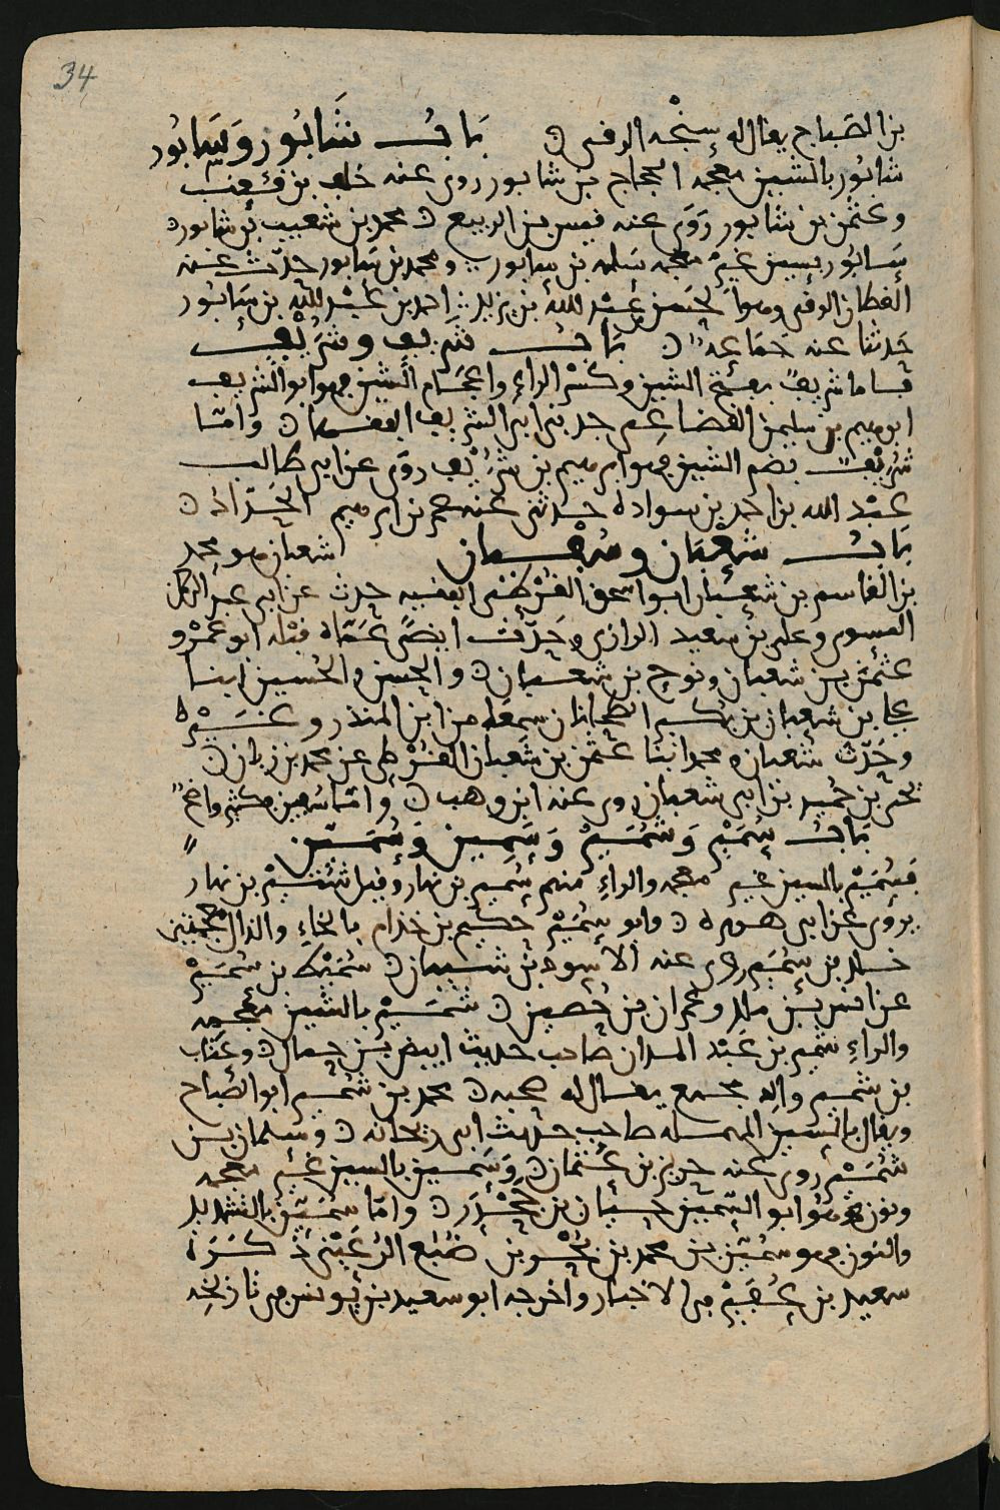 34
بن الصباح يقال له سنجه الرقي باب شابور وسابور
شابور بالشين معجمه الحجاج بن شابور روى عنه خلف بن قعنب
وعثمن بن شابور روى عنه قيس بن الربيع محمد بن شعيب بن شابور
سابور بسين غير معجمه سلمه بن سابور ومحمد بن سابور حدث عنه
القطان الرقي وهو الحسن بن عبد الله بن يزيد احمد بن عبد الله بن سابور
حدثنا عنه جماعه باب شريف وشريف
فاما شريف بفتح الشين وكسر الراء واعجام الشين فهو ابو الشريف
ابرهيم بن سليمن القضاعي جد بني ابي الشريف واما
شريف بضم الشين فهو ابرهيم بن شريف روى عن ابي طالب
عبد الله بن احمد بن سواده حدثني عنه عمر بن ابرهيم الحداد
باب شعبان وشعبان هو محمد
بن القاسم بن شعبان ابو اسحق القرطي الفقيه حدث عن ابي عبد الرحمن
النسوي وعلي بن سعيد الرازي وحدث ايضا عماه قبله ابو عمرو
عثمن بن شعبان ونوح بن شعبان والحسن والحسين ابنا
بن شعبان بن سمعا من ابن المنذر وغيره
وحدث شعبان ومحمد ابنا عثمن بن شعبان القرطي عن محمد بن زبان
بن حميد بن ابي شعبان روى عنه ابن وهب واما
باب سمير وشمير وسمين وسمين
فسمير بالسين غير معجمه والراء منهم سمير بن نهار وقيل شتير بن نهار
يروي عن ابي هريره وابو سمير حكيم بن خذام بالخاء والذال معجمتين
خلد بن سمير روى عنه الاسود بن شيبان سميط بن سمير
عن انس بن ملك وعمران بن حصين شمير بالشين معجمه
والراء شمير بن عبد المدان صاحب حديث ابيض بن حمال وعقاب
بن شمير واله مجمع يقال له صحبه محمد بن شمير ابو الصباح
ويقال بالسين المهمله صاحب حديث ابي ريحانه وسلمان بن
شمير روى عنه حريز بن عثمان وسمين بالسين غير معجمه
ونون فهو ابو السمين حسان بن واما سمين بالتشديد
والنون فهو سمين بن محمد بن بن ضبع الرعيني ذكره
سعيد بن عفير في الاخبار واخرجه ابو سعيد بن يونس في تاريخه